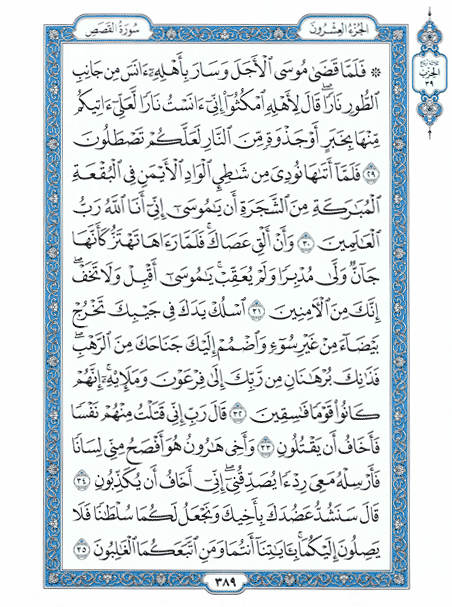 الجُزْءُ العِشْرُونَ
سُورَةُ القَصَصِ
الحِزْبُ
٣٩
۞ فَلَمَّا قَضَىٰ مُوسَى ٱلْأَجَلَ وَسَارَ بِأَهْلِهِۦٓ ءَانَسَ مِن جَانِبِ
ٱلطُّورِ نَارًاۖ قَالَ لِأَهْلِهِ ٱمْكُثُوٓاْ إِنِّيٓ ءَانَسْتُ نَارًا لَّعَلِّيٓ ءَاتِيكُم
مِّنْهَا بِخَبَرٍ أَوْ جَذْوَةٍ مِّنَ ٱلنَّارِ لَعَلَّكُمْ تَصْطَلُونَ
٢٩ فَلَمَّآ أَتَىٰهَا نُودِيَ مِن شَٰطِيِٕ ٱلْوَادِ ٱلْأَيْمَنِ فِي ٱلْبُقْعَةِ
ٱلْمُبَٰرَكَةِ مِنَ ٱلشَّجَرَةِ أَن يَٰمُوسَىٰٓ إِنِّيٓ أَنَا ٱللَّهُ رَبُّ
ٱلْعَٰلَمِينَ ٣٠ وَأَنْ أَلْقِ عَصَاكَۖ فَلَمَّا رَءَاهَا تَهْتَزُّ كَأَنَّهَا
جَآنٌّ وَلَّىٰ مُدْبِرًا وَلَمْ يُعَقِّبْۚ يَٰمُوسَىٰٓ أَقْبِلْ وَلَا تَخَفْۖ
إِنَّكَ مِنَ ٱلْأٓمِنِينَ ٣١ ٱسْلُكْ يَدَكَ فِي جَيْبِكَ تَخْرُجْ
بَيْضَآءَ مِنْ غَيْرِ سُوٓءٍ وَٱضْمُمْ إِلَيْكَ جَنَاحَكَ مِنَ ٱلرَّهْبِۖ
فَذَٰنِكَ بُرْهَٰنَانِ مِن رَّبِّكَ إِلَىٰ فِرْعَوْنَ وَمَلَإِيْهِۦٓۚ إِنَّهُمْ
كَانُواْ قَوْمًا فَٰسِقِينَ ٣٢ قَالَ رَبِّ إِنِّي قَتَلْتُ مِنْهُمْ نَفْسًا
فَأَخَافُ أَن يَقْتُلُونِ ٣٣ وَأَخِي هَٰرُونُ هُوَ أَفْصَحُ مِنِّي لِسَانًا
فَأَرْسِلْهُ مَعِيَ رِدْءًا يُصَدِّقُنِيٓۖ إِنِّيٓ أَخَافُ أَن يُكَذِّبُونِ ٣٤
قَالَ سَنَشُدُّ عَضُدَكَ بِأَخِيكَ وَنَجْعَلُ لَكُمَا سُلْطَٰنًا فَلَا
يَصِلُونَ إِلَيْكُمَاۚ بِـَٔايَٰتِنَآ أَنتُمَا وَمَنِ ٱتَّبَعَكُمَا ٱلْغَٰلِبُونَ ٣٥
٣٨٩